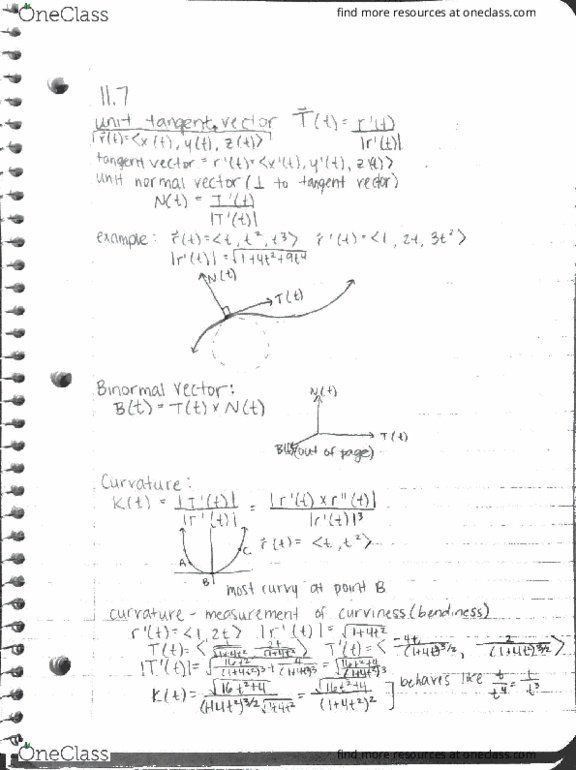 OneClass
find more resources at oneclass.com
11.7
unit tangent vector T⃗(t) = r'(t) / |r'(t)|
r⃗(t)=<x(t), y(t), z(t)>
tangent vector = r'(t)=<x'(t), y'(t), z'(t)>
unit normal vector (⊥ to tangent vector)
N(t) = T'(t) / |T'(t)|
example: r⃗(t)=<t, t², t3> r⃗'(t)=<1, 2t, 3t²>
|r'(t)| = √(1+4t²+9t⁴)
N(t)
T(t)
Binormal Vector:
B(t) = T(t) × N(t)
N(t)
T(t)
(out of page)
Curvature:
K(t) = |T'(t)| / |r'(t)| = |r'(t) × r''(t)| / |r'(t)|³
r⃗(t) = <t, t²>
A
B
C
most curvy at point B
curvature - measurement of curviness (bendiness)
r'(t)=<1, 2t> |r'(t)| = √(1+4t²)
T(t)= T'(t)= < -4t / (1+4t²)^3/2, 2 / (1+4t²)^3/2 >
|T'(t)| = √(16t² / (1+4t²)³ + 4 / (1+4t²)³) = √(16t²+4 / (1+4t²)³)
K(t) = √(16t²+4) / (1+4t²)^3/2 √(1+4t²) = √(16t²+4) / (1+4t²)² ] behaves like t / t⁴ = 1 / t³
OneClass
find more resources at oneclass.com